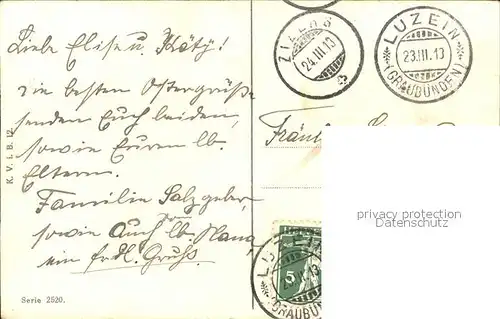 Liebe Elise u. Käty!
die besten Ostergrüße
senden Euch beiden,
sowie Euren lb.
Eltern.
Familie Salzgeber,
sowie Auch lb. Nana,
ein frdl. Gruss.
K. V. i. B. 12
Serie 2520.
ZILLIS
24.III.13
LUZEIN
23.III.13
(GRAUBÜNDEN)
Fräulein
privacy protection
Datenschutz
LUZEIN
5
(GRAUBÜNDEN)